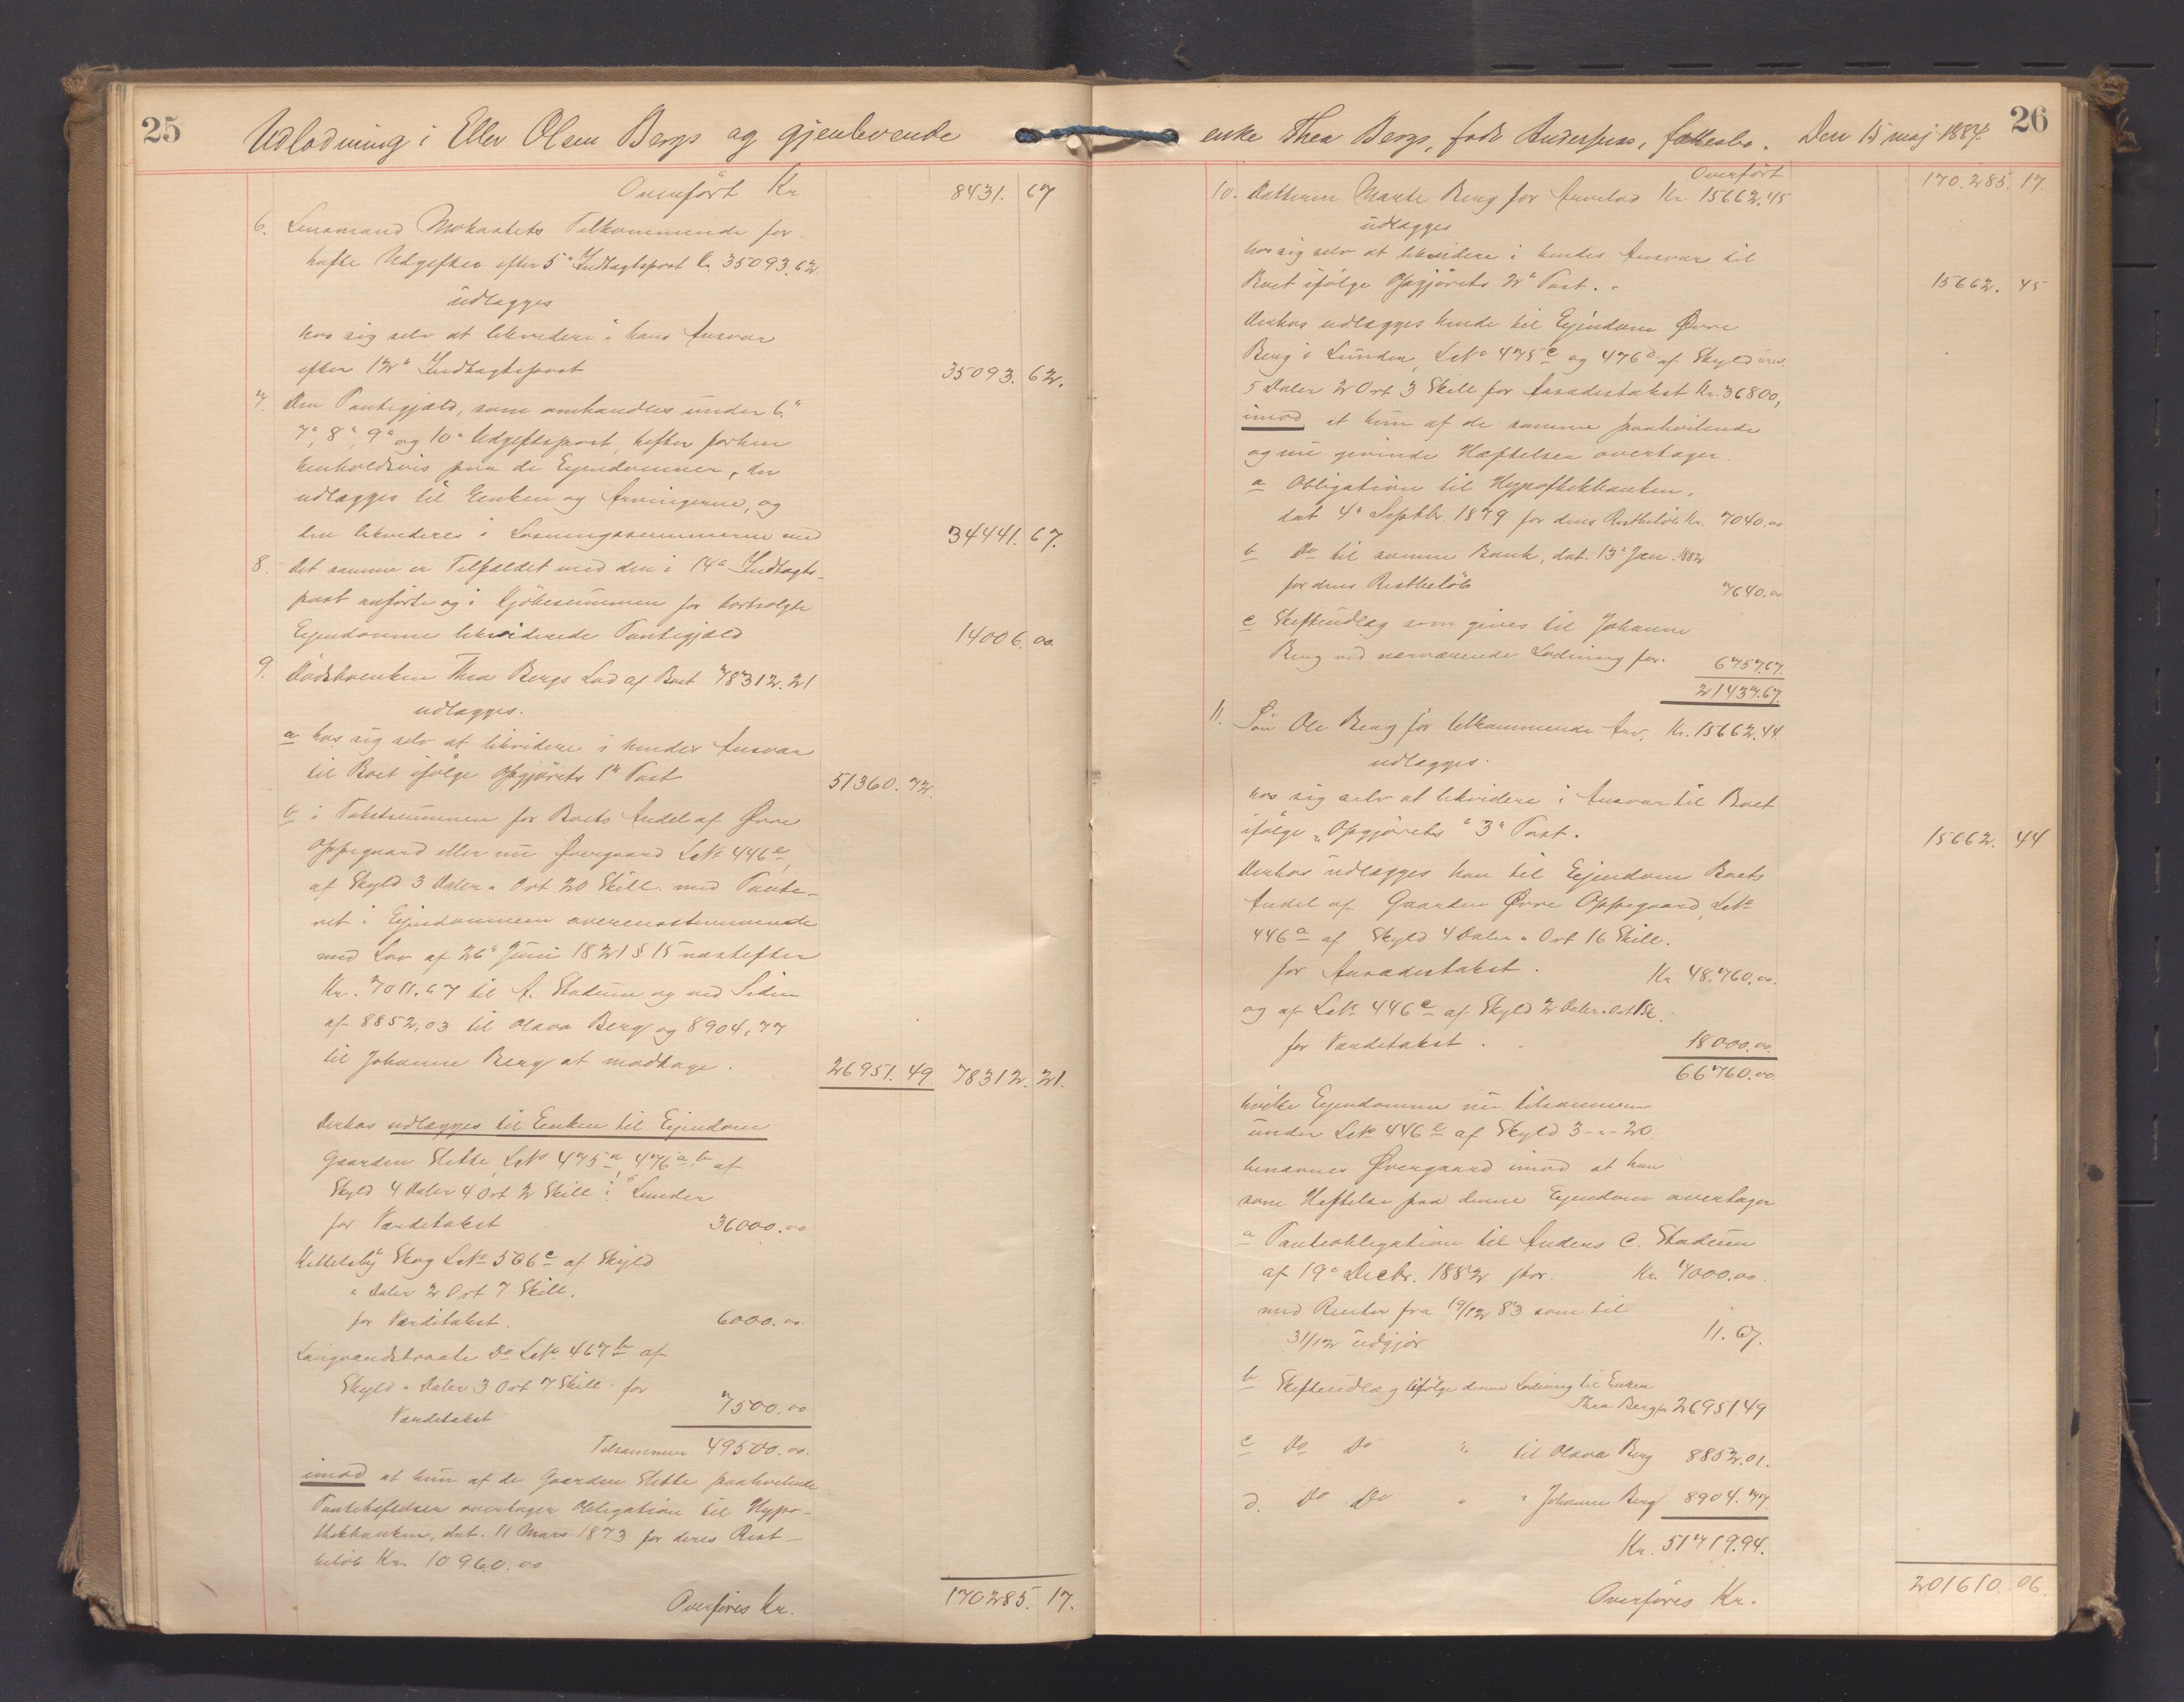 25
Udlodning i Eller Olsen Bergs og gjenlevende
Overført Kr 8431. 67
6. Lensmand Mokastets Tilkommende for
hafte Udgifter efter 5te Indtagtspost Kr. 35093.62
udlægges
hos sig selv at likvidere i hans Ansvar
efter 12te Indtagtspost 35093. 62.
7. Den Pantegjæld, som omhandles under 6te
7de, 8de, 9de og 10de Udgiftspost, hefter
henholdsvis paa de Eiendomme, der
udlægges til Enken og Arvingerne, og
den likvideres i Løsningssummerne med 34441. 67.
8. Det samme er Tilfældet med den i 14de Indtagts-
post anførte og i Kjøbesummen for bortsolgte
Eiendomme likviderede Pantegjæld 14006. 00.
9. Thea Bergs Lod af Boet 78312.21
udlægges.
a hos sig selv at likvidere i hendes Ansvar
til Boet ifølge Opgjørets 1ste Post 51360. 72.
b i Takstsummen for Boets Andel af Øvre
Oppegaard eller nu Øvergaard LNo 446e,
af Skyld 3 Daler " Ort 20 Skill. med Pante-
ret i Ejendommen overensstemmende
med Lov af 26de Juni 1821 § 15 næstefter
Kr. 7011.67 til A. Stadum og ved Siden
af 8852,03 til Olava Berg og 8904,77
til Johanne Berg at modtage. 26951. 49. 78312. 21.
Derhos udlægges til Enken til Ejendom
Gaarden Slette LNo 475a, 476a,b af
Skyld 4 Daler 4 Ort 2 Skill i Lunder
for Værditakst 36000.00
Kittelsby Skog LNo 506c af Skyld
" Daler 2 Ort 7 Skill.
for Værditakst. 6000.00
Langvandsbraate Do LNo 467b af
Skyld " Daler 3 Ort 7 Skill. for
Værditakst 7500.00
Tilsammen 49500.00.
imod at hun af de Gaarden Slette paahvilende
Pantehæftelser overtager Obligation til Hypo-
thekbanken, dat. 11 Mars 1873 for deres Rest-
beløb Kr. 10960.00
Overføres Kr. 170285. 17.
26
enke Thea Bergs, født Andersens, fællesbo. Den 15 maj 1884.
Overført 170.285. 17.
10. Datteren Marthe Berg for Arvelod Kr. 15662.45
udlægges
hos sig selv at likvidere i hendes Ansvar til
Boet ifølge Opgjørets 2den Post. 15662. 45
Derhos udlægges hende til Ejendom Øvre
Berg i Lunder, LNo 475c og 476d af Skyld
5 Daler 2 Ort 3 Skill for Aasædestakst Kr. 36800,
imod at hun af de samme paahvilende
og nu givende Hæftelser overtager
a Obligation til Hypothekbanken,
dat 4de Septbr. 1879 for dens Restbeløb Kr. 7040.00
b Do til samme Bank, dat. 13de Jan. 1882
for dens Restbeløb 7640.00
c Skifteudlæg som gives til Johanne
Berg ved nærværende Lodning for. 6757.67.
21437.67.
11. Søn Ole Berg for tilkommende Arv, Kr. 15662.44.
udlægges.
hos sig selv at likvidere i Ansvar til Boet
ifølge "Opgjørets" 3die Post. 15662. 44
Derhos udlægges han til Ejendom Boets
Andel af Gaarden Øvre Oppegaard, LNo
446a af Skyld 4 Daler " Ort 16 Skill.
for Aasædestakst. Kr. 48.760,00.
og af LNo 446c af Skyld 2 Daler " Ort
for Værditakst. 18000.00.
66760.00
hvilke Ejendomme nu tilsammen
under LNo 446e af Skyld 3 - " - 20
benævnes Øvergaard imod at han
som Heftelse paa denne Ejendom overtager
a Panteobligation til Anders C. Stadum
af 19de Decbr. 1882 stor. Kr. 7000.00.
med Renter fra 19/12 83 som til
31/12 udgjør 11. 67.
b Skifteudlæg ifølge denne Lodning til Enken
Thea Berg for 26951.49
c Do Do " til Olava Berg 8852.01.
d. Do Do " " Johanne Berg 8904.77.
Kr. 51719.94.
Overføres Kr. 201610. 06.